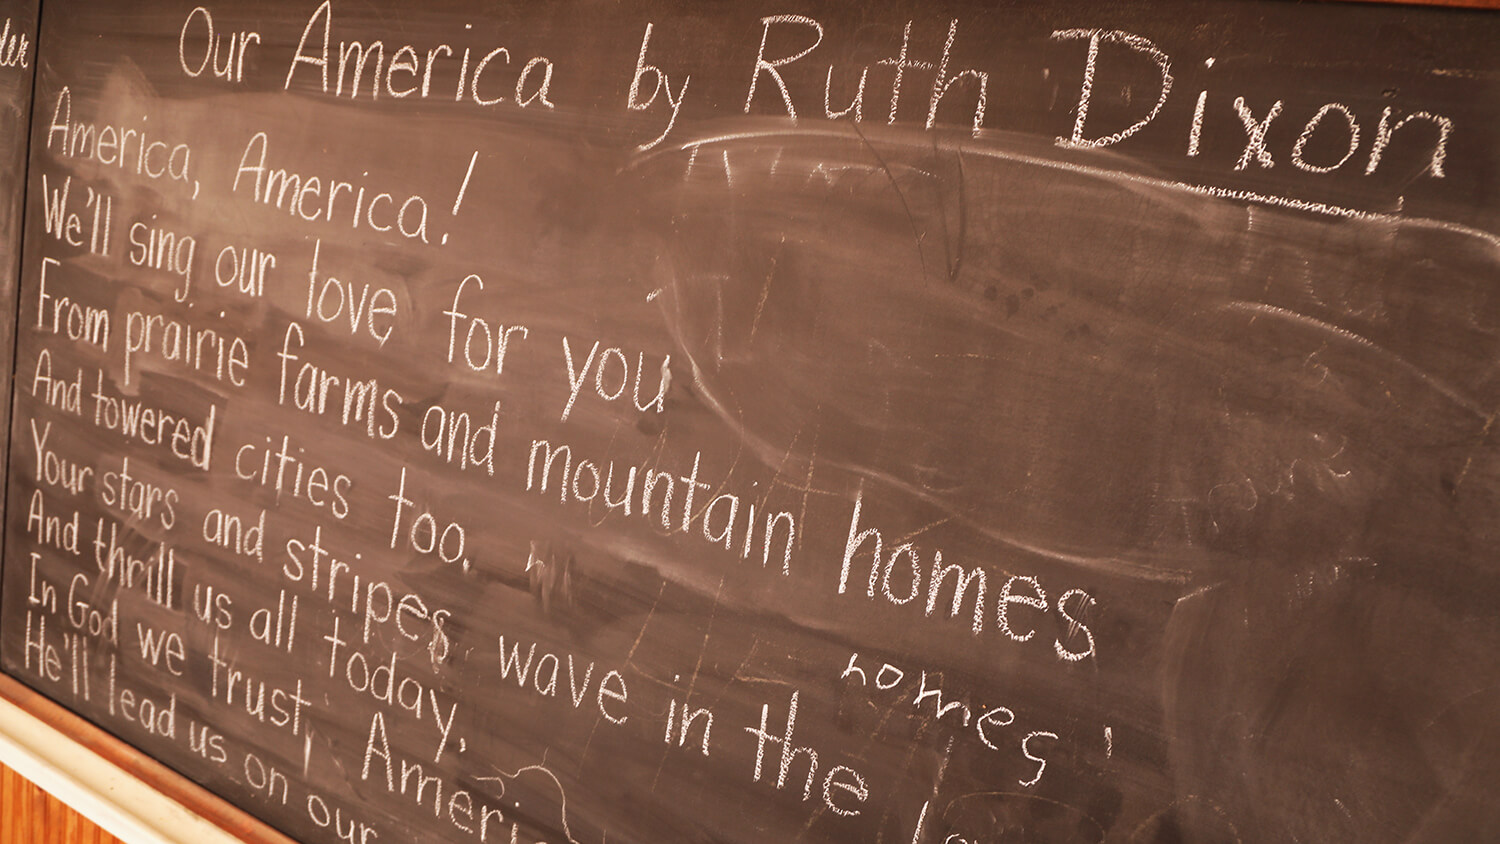 Our America by Ruth Dixon
America, America!
We'll sing our love for you
From prairie farms and mountain homes
And towered cities too.
homes
Your stars and stripes wave in the
And thrill us all today.
In God we trust, Ameri
He'll lead us on our